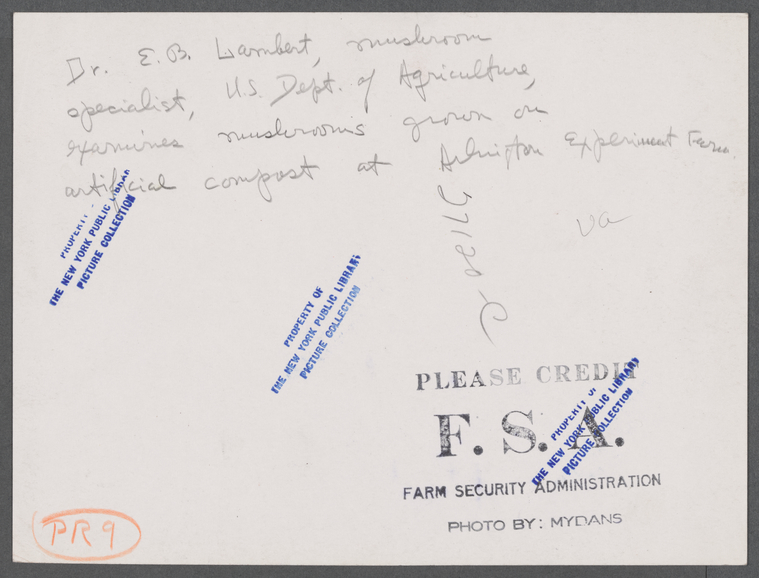 Dr. E. B. Lambert, mushroom
specialist, U.S. Dept. of Agriculture,
examines mushrooms grown on
artificial compost at Arlington Experiment Farm.
Va
PROPERTY OF
THE NEW YORK PUBLIC LIBRARY
PICTURE COLLECTION
PROPERTY OF
THE NEW YORK PUBLIC LIBRARY
PICTURE COLLECTION
PLEASE CREDIT
F. S. A.
PROPERTY OF
THE NEW YORK PUBLIC LIBRARY
PICTURE COLLECTION
FARM SECURITY ADMINISTRATION
PHOTO BY: MYDANS
PR9